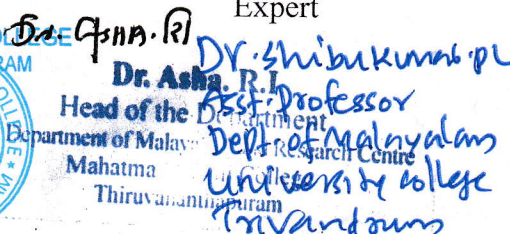 Expert
Dr. ASHA. R.
LLEGE
RAM
Dr. Asha. R.I
Head of the Department
Department of Malay Research Centre
Mahatma College
Thiruvananthapuram
Dr. Shibukumar. PL
Asst. Professor
Dept. of Malayalam
University College
Trivandrum